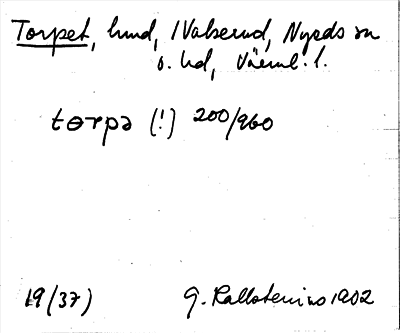 Torpet, hmd, 1 Valserud, Nyeds sn
o. hd, Värml. l.
tɵrpə (!) 200/960
19 (37) G. Kallstenius 1902